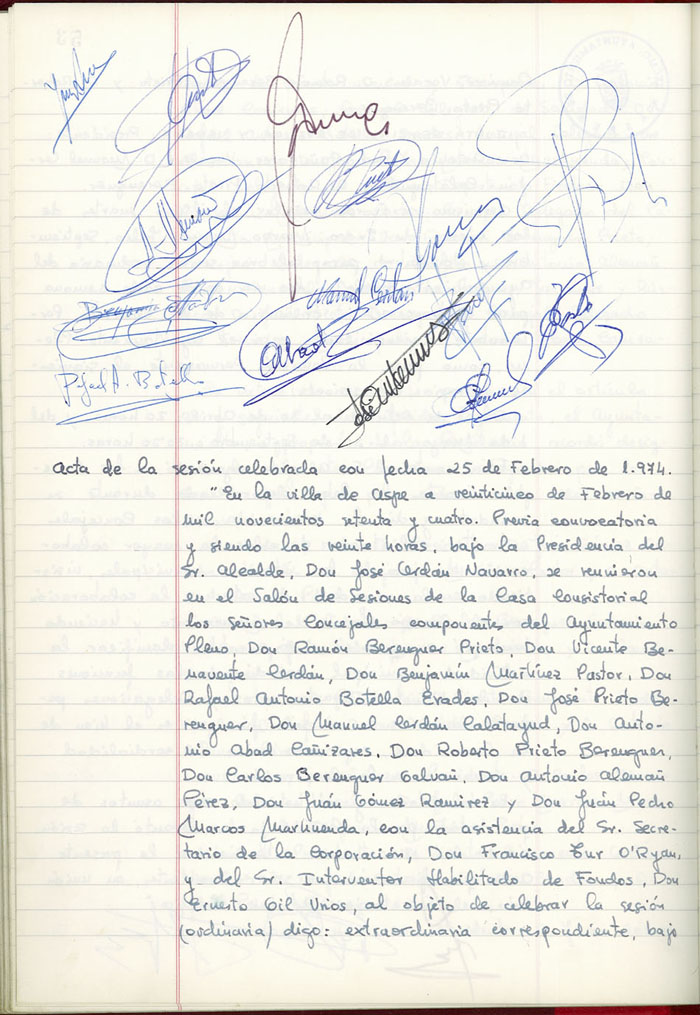 Benjamín
Manuel Cerdán
A. Abad
Rafael A. Botella
Acta de la sesión celebrada con fecha 25 de Febrero de 1.974.
"En la villa de Aspe a veinticinco de Febrero de
mil novecientos setenta y cuatro. Previa convocatoria
y siendo las veinte horas, bajo la Presidencia del
Sr. Alcalde, Don José Cerdán Navarro, se reunieron
en el Salón de Sesiones de la Casa Consistorial
los Señores Concejales componentes del Ayuntamiento
Pleno, Don Ramón Berenguer Prieto, Don Vicente Be-
navente Cerdán, Don Benjamín Martínez Pastor, Don
Rafael Antonio Botella Erades, Don José Prieto Be-
renguer, Don Manuel Cerdán Calatayud, Don Anto-
nio Abad Cañizares, Don Roberto Prieto Berenguer,
Don Carlos Berenguer Galvañ, Don Antonio Alemañ
Pérez, Don Juán Gómez Ramirez y Don Juán Pedro
Marcos Martinenda, con la asistencia del Sr. Secre-
tario de la Corporación, Don Francisco Tur O'Ryan,
y del Sr. Interventor Habilitado de Fondos, Don
Ernesto Gil Urios, al objeto de celebrar la sesión
(ordinaria) digo: extraordinaria correspondiente, bajo